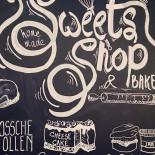 Sweets
home made
Shop
& BAKE
OSSCHE
OLLEN
CHEESE
CAKE